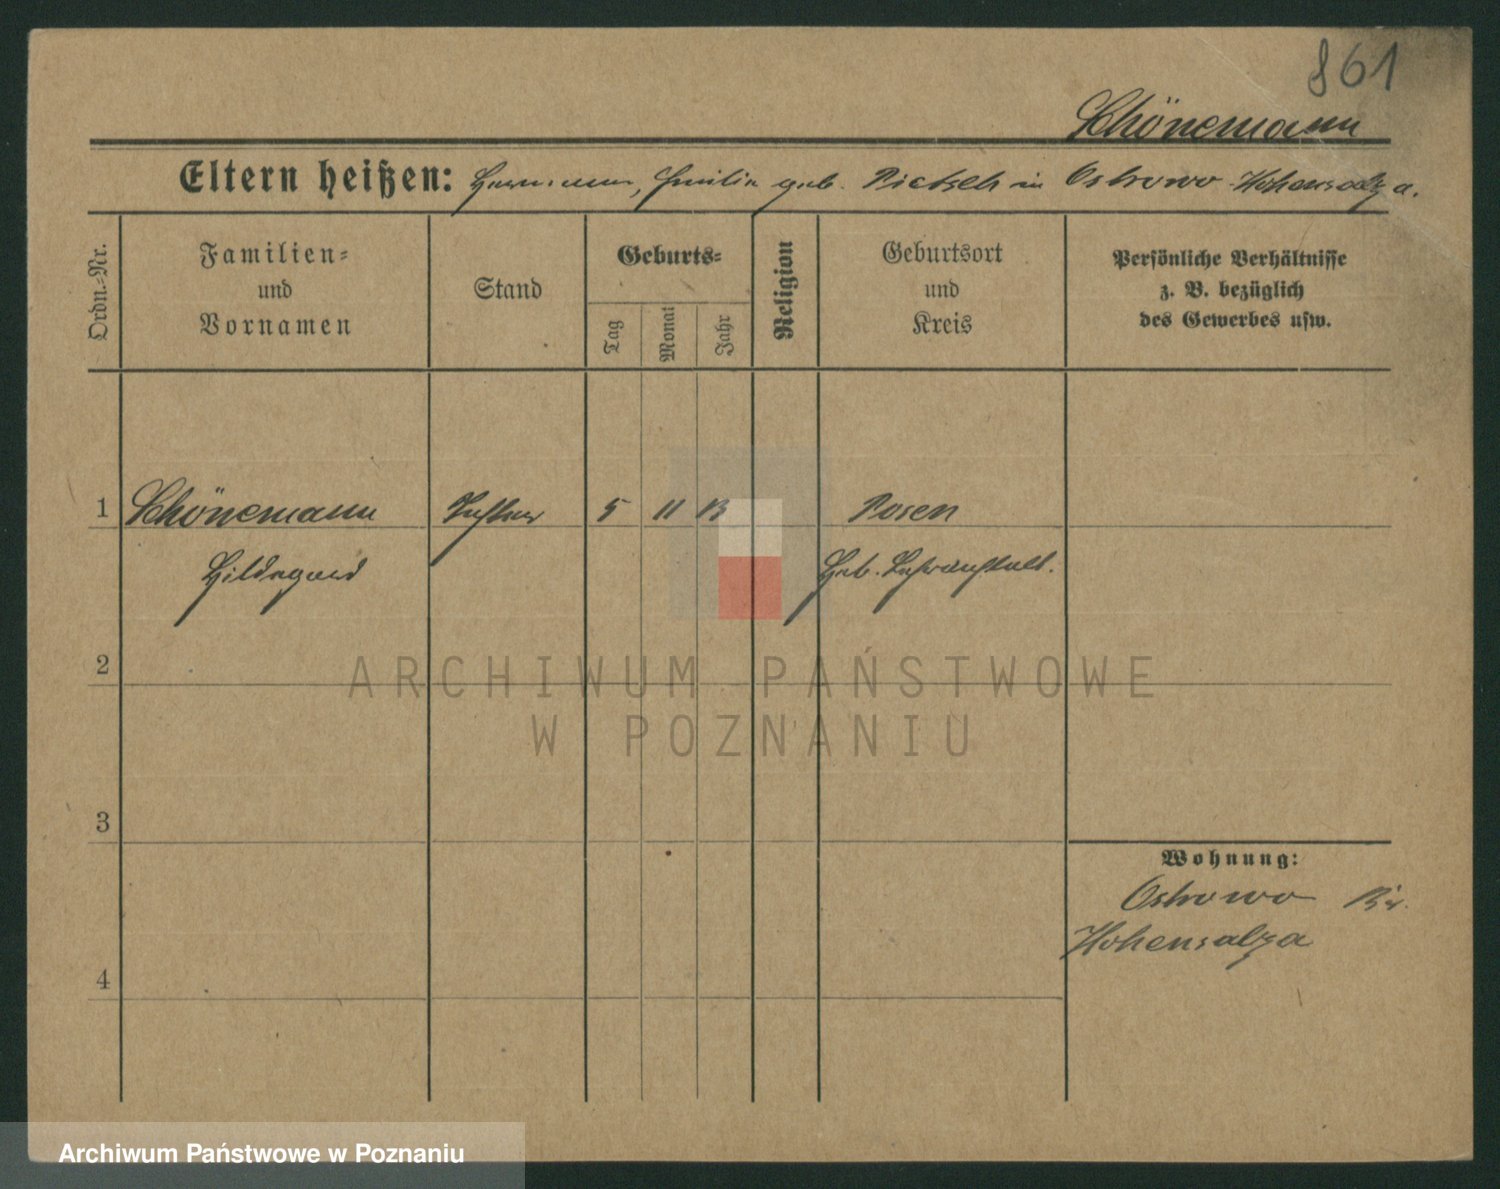 861
Schönemann
Eltern heißen: Hermann, Emilie geb. Pietsch in Ostrowo-Hohensalza.
Ordn.-Nr.
Familien-
und
Vornamen
Stand
Geburts-
Tag
Monat
Jahr
Religion
Geburtsort
und
Kreis
Persönliche Verhältnisse
z. B. bezüglich
des Gewerbes usw.
1 Schönemann Tochter 5 11 13 Posen
Hildegard Heb. Lehranstalt.
2
ARCHIWUM PAŃSTWOWE
W POZNANIU
3
Wohnung:
Ostrowo
Hohensalza
4
Archiwum Państwowe w Poznaniu